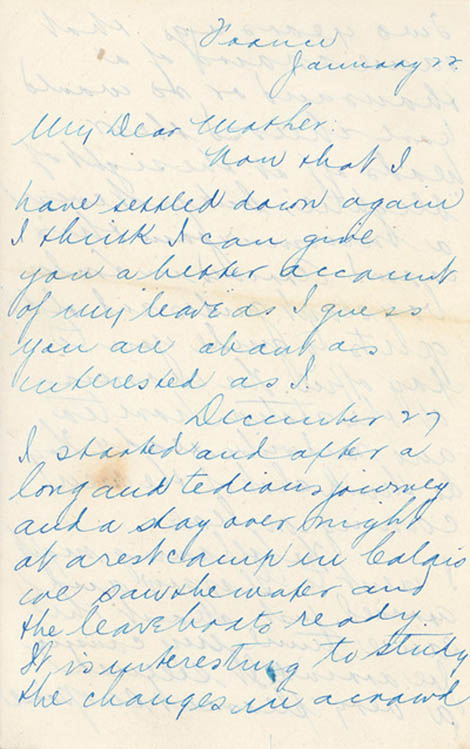 France
January 22.
My Dear Mother.
Now that I
have settled down again
I think I can give
you a better account
of my leave as I guess
you are about as
interested as I.
December 27
I started and after a
long and tedious journey
and a stay over night
at a rest camp in Calais
we saw the water and
the leave boats ready.
It is interesting to study
the changes in a crowd